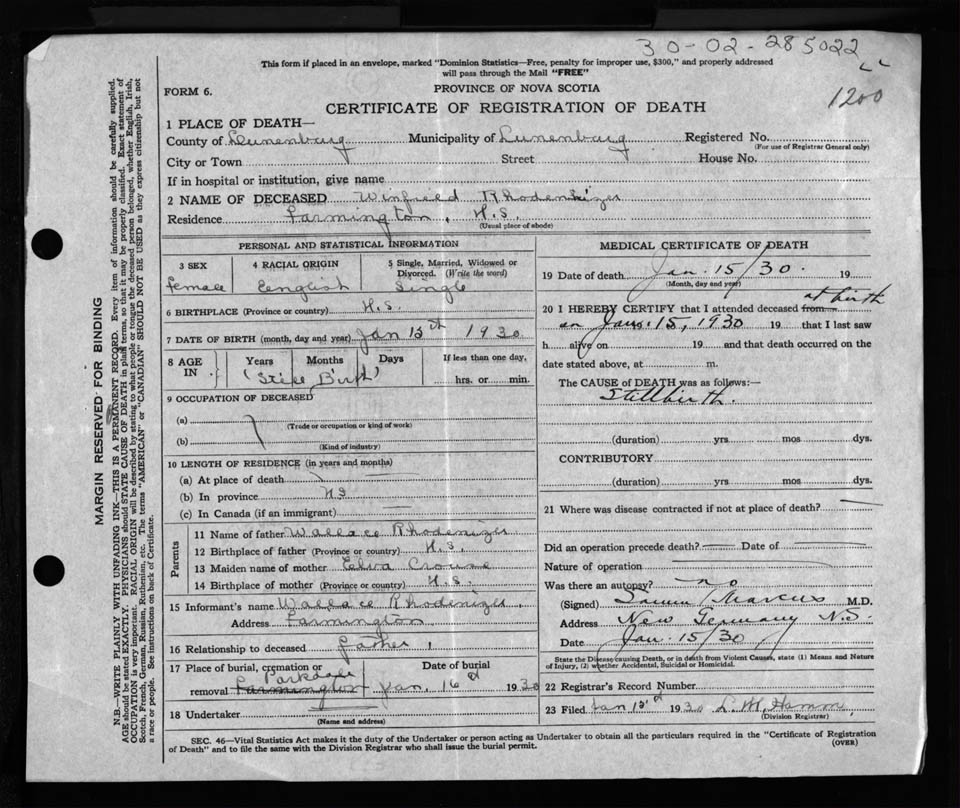 30-02-285022
1200
This form if placed in an envelope, marked "Dominion Statistics—Free, penalty for improper use, $300," and properly addressed
will pass through the Mail "FREE"
FORM 6.
PROVINCE OF NOVA SCOTIA
CERTIFICATE OF REGISTRATION OF DEATH
1 PLACE OF DEATH—
County of Lunenburg Municipality of Lunenburg Registered No.
(For use of Registrar General only)
City or Town Street House No.
If in hospital or institution, give name
2 NAME OF DECEASED Winfield Rhodenizer
Residence Farmington, N.S.
(Usual place of abode)
PERSONAL AND STATISTICAL INFORMATION
3 SEX 4 RACIAL ORIGIN 5 Single, Married, Widowed or
Divorced. (Write the word)
female English Single
6 BIRTHPLACE (Province or country) N.S.
7 DATE OF BIRTH (month, day and year) Jan 15th 1930
8 AGE IN Years Months Days If less than one day,
(Still Birth) hrs. or min.
9 OCCUPATION OF DECEASED
(a)
(Trade or occupation or kind of work)
(b)
(Kind of industry)
10 LENGTH OF RESIDENCE (in years and months)
(a) At place of death
(b) In province N S
(c) In Canada (if an immigrant)
Parents
11 Name of father Wallace Rhodenizer
12 Birthplace of father (Province or country) N.S.
13 Maiden name of mother Elva Crouse
14 Birthplace of mother (Province or country) N.S.
15 Informant's name Wallace Rhodenizer,
Address Farmington
16 Relationship to deceased father,
17 Place of burial, cremation or Date of burial
Parkdale
removal Farmington Jan. 16 1930
18 Undertaker
(Name and address)
MEDICAL CERTIFICATE OF DEATH
19 Date of death Jan. 15/30. 19
(Month, day and year)
20 I HEREBY CERTIFY that I attended deceased from at birth
on Jan. 15, 1930 19 that I last saw
h alive on 19 and that death occurred on the
date stated above, at m.
The CAUSE OF DEATH was as follows:—
Stillbirth.
(duration) yrs mos dys.
CONTRIBUTORY
(duration) yrs mos dys.
21 Where was disease contracted if not at place of death?
Did an operation precede death? Date of
Nature of operation
Was there an autopsy? no
(Signed) Marcus M.D.
Address New Germany N.S.
Date Jan. 15/30
State the Disease causing Death, or in death from Violent Causes, state (1) Means and Nature
of Injury, (2) whether Accidental, Suicidal or Homicidal.
22 Registrar's Record Number
23 Filed Jan 1930 L. M. Hamm
(Division Registrar)
SEC. 46—Vital Statistics Act makes it the duty of the Undertaker or person acting as Undertaker to obtain all the particulars required in the "Certificate of Registration
of Death" and to file the same with the Division Registrar who shall issue the burial permit.
(OVER)
MARGIN RESERVED FOR BINDING
N.B.—WRITE PLAINLY WITH UNFADING INK—THIS IS A PERMANENT RECORD. Every item of information should be carefully supplied.
AGE should be stated EXACTLY. PHYSICIANS should STATE CAUSE OF DEATH in plain terms, so that it may be properly classified. Exact statement of
OCCUPATION is very important. RACIAL ORIGIN will be described by stating to what people or tongue the deceased person belonged, whether English, Irish,
Scotch, French, German, Russian, Ruthenian, etc. The terms "AMERICAN" or "CANADIAN" SHOULD NOT BE USED as they express citizenship but not
a race or people. See instructions on back of Certificate.